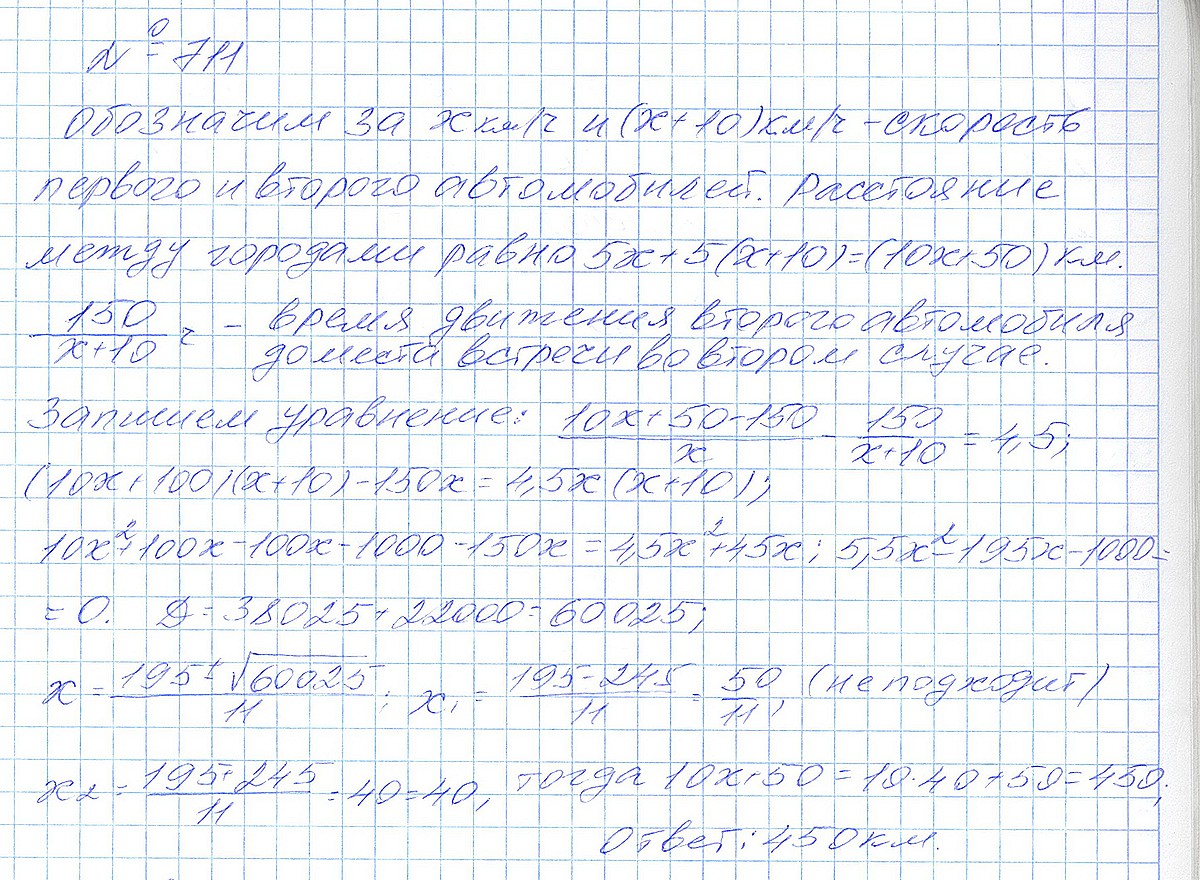 № 711
Обозначим за x км/ч и (x+10) км/ч - скорость
первого и второго автомобилей. Расстояние
между городами равно 5x+5(x+10)=(10x+50) км.
150/(x+10) ч - время движения второго автомобиля
до места встречи во втором случае.
Запишем уравнение: (10x+50-150)/x - 150/(x+10) = 4,5;
(10x+100)(x+10)-150x=4,5x(x+10);
10x²+100x-100x-1000-150x=4,5x²+45x; 5,5x²-195x-1000=
=0. D=38025+22000=60025;
x = (195±√60025)/11; x₁ = (195-245)/11 = 50/11; (не подходит)
x₂ = (195+245)/11 = 40=40, тогда 10x+50=10·40+50=450;
Ответ: 450 км.